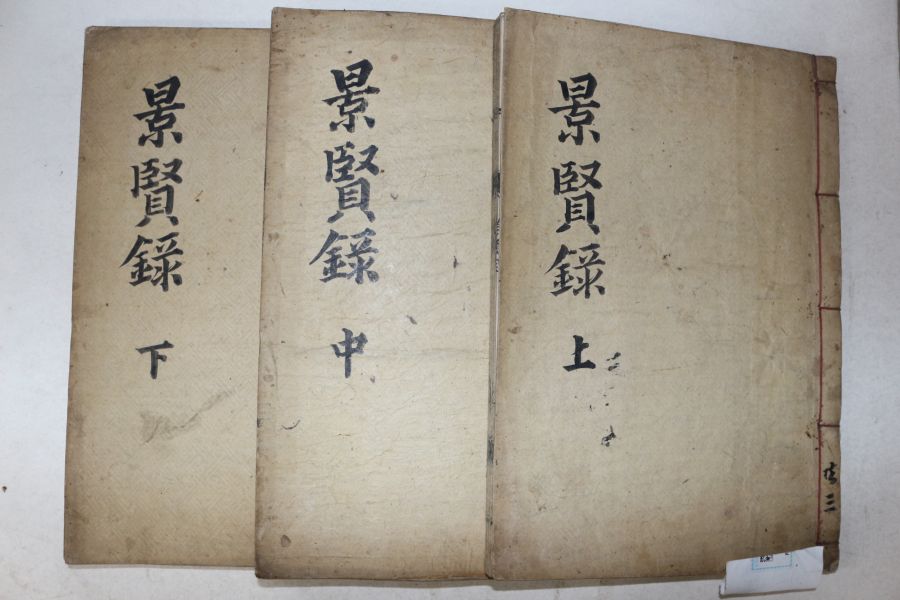 景賢錄上
共三
景賢錄中
景賢錄下